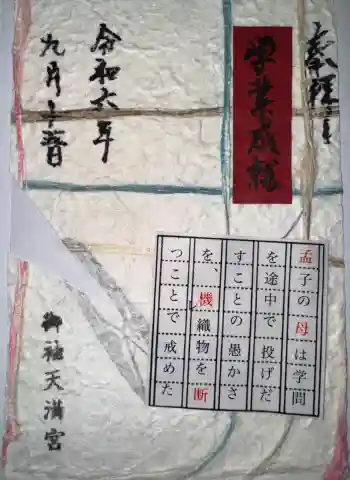 奉拝
学業成就
令和六年
九月吉日
御袖天満宮
孟子の母は学問
を途中で投げだ
すことの愚かさ
を、機織物を断
つことで戒めた